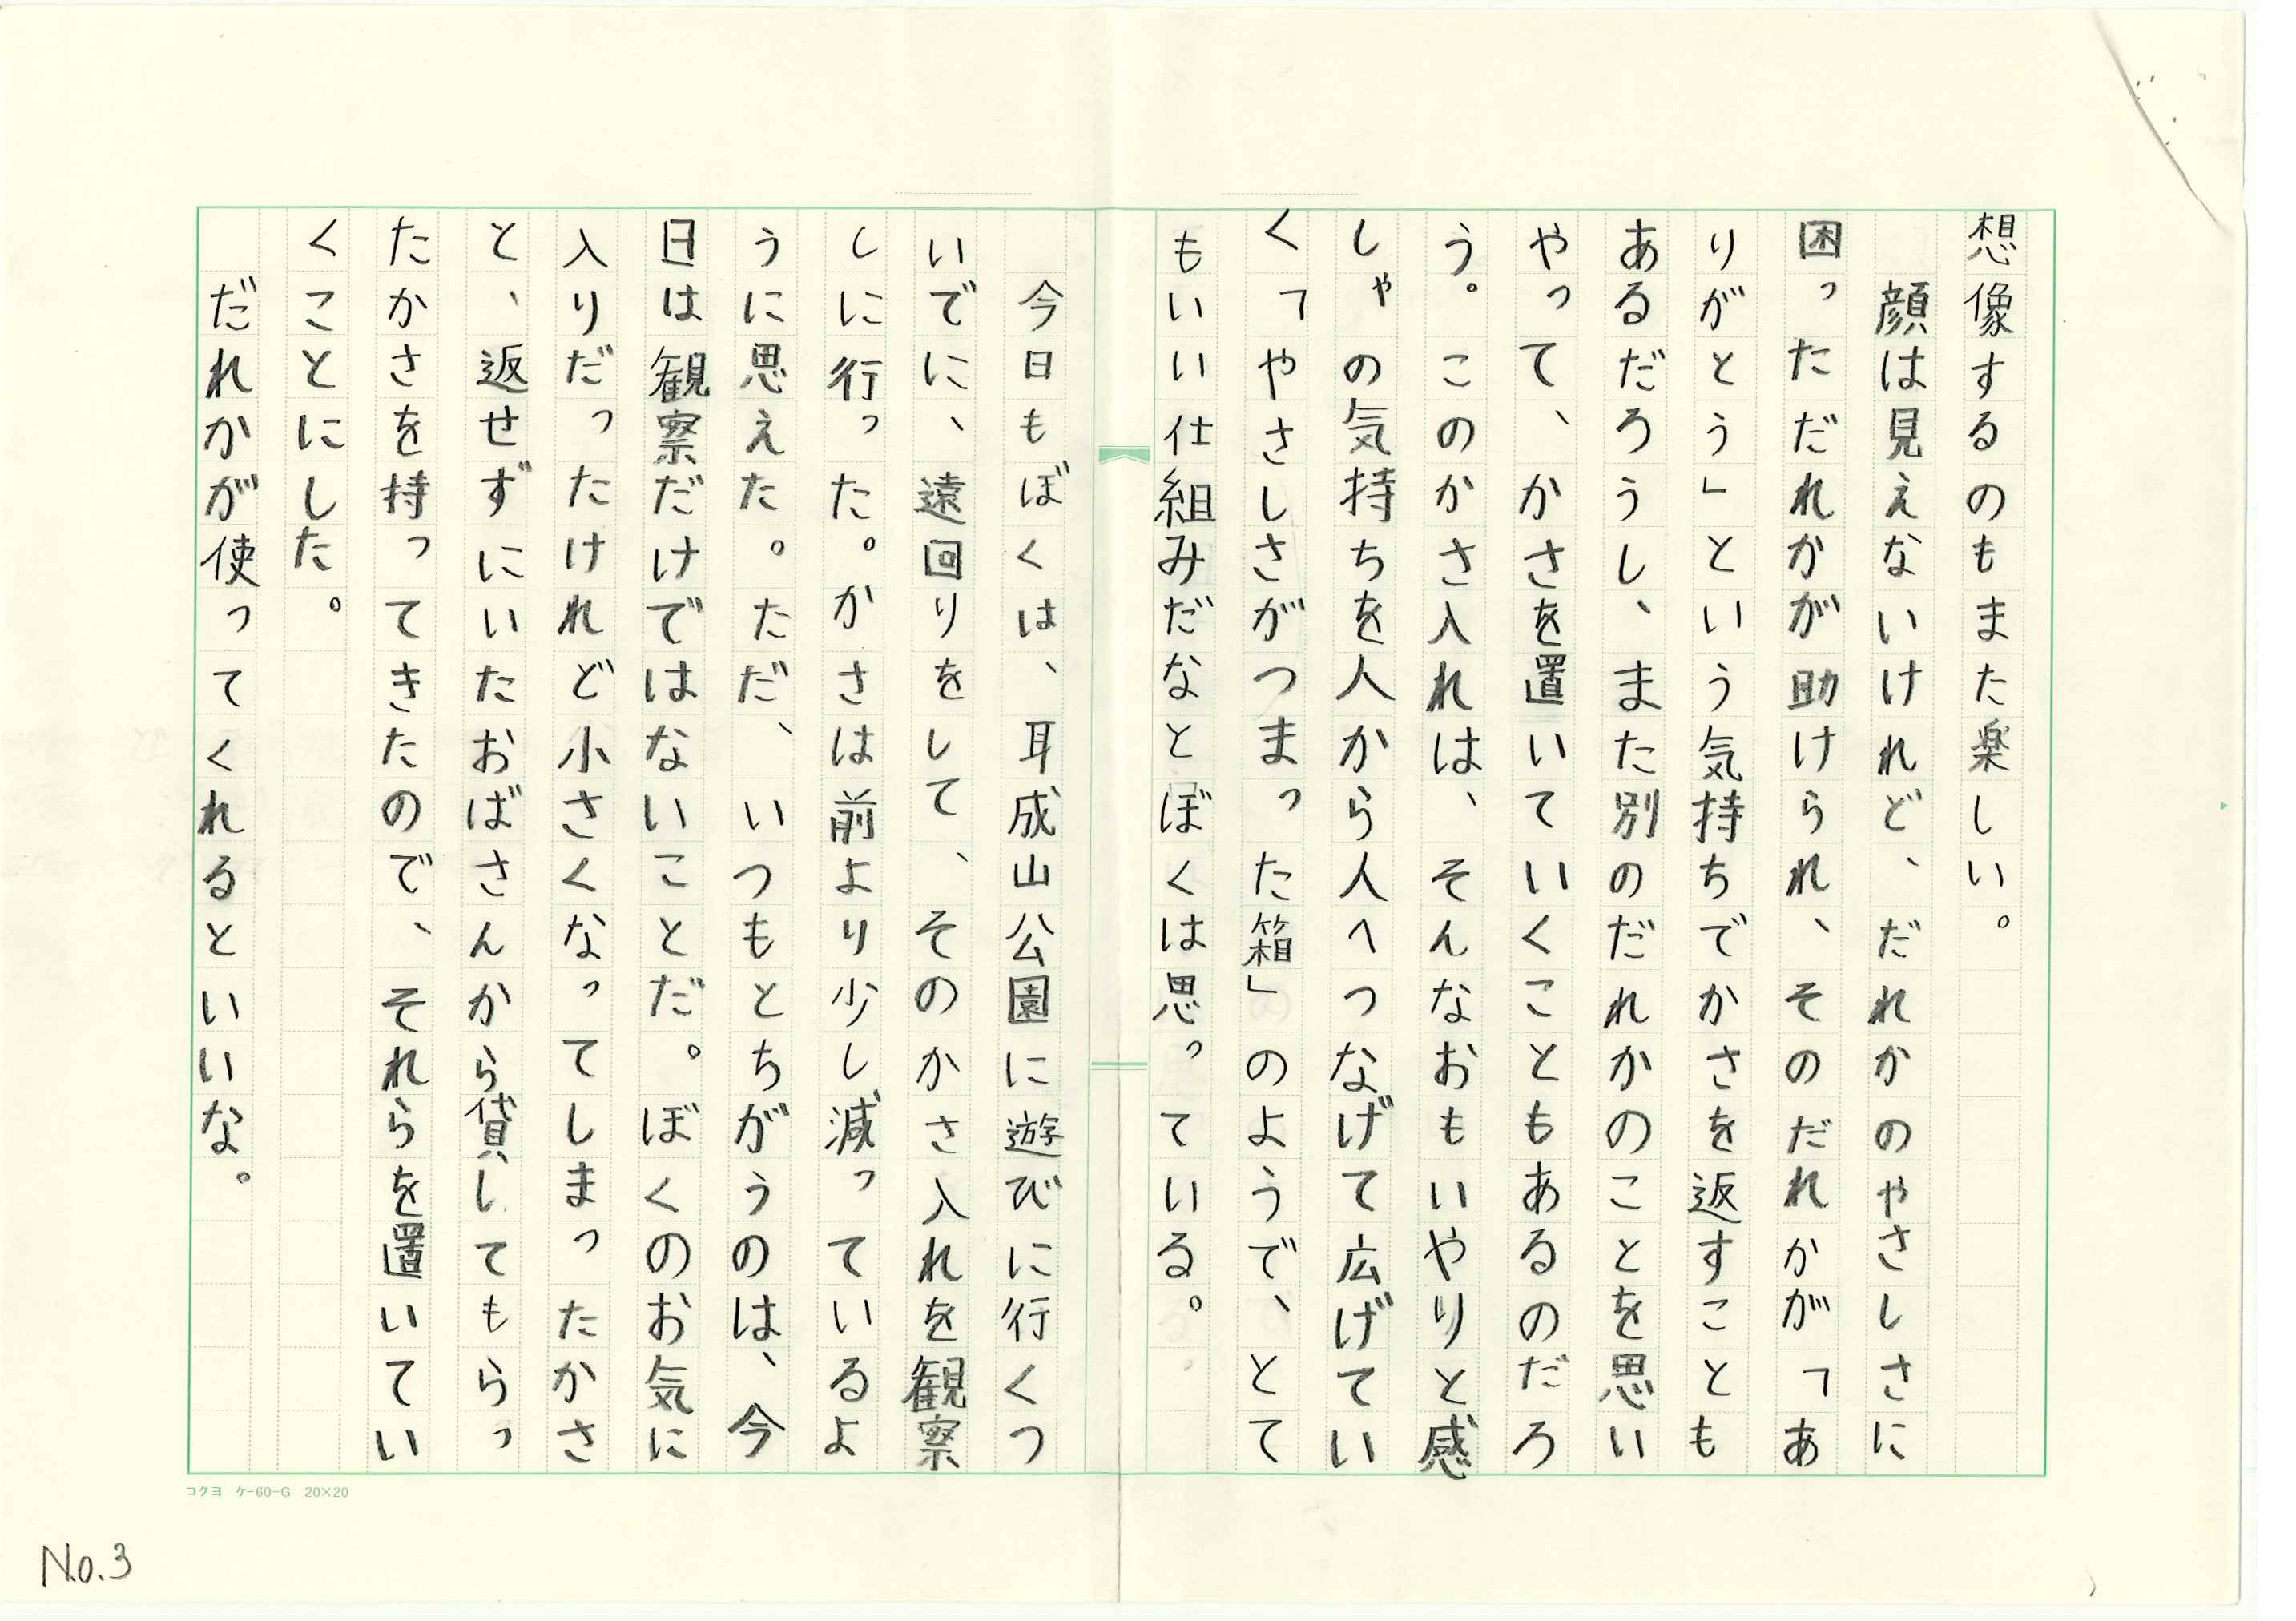 想像するのもまた楽しい。
顔は見えないけれど、だれかのやさしさに
困っただれかが助けられ、そのだれかが「あ
りがとう」という気持ちでかさを返すことも
あるだろうし、また別のだれかのことを思い
やって、かさを置いていくこともあるのだろ
う。このかさ入れは、そんなおもいやりと感
しゃの気持ちを人から人へつなげて広げてい
く「やさしさがつまった箱」のようで、とて
もいい仕組みだなとぼくは思っている。
今日もぼくは、耳成山公園に遊びに行くつ
いでに、遠回りをして、そのかさ入れを観察
しに行った。かさは前より少し減っているよ
うに思えた。ただ、いつもとちがうのは、今
日は観察だけではないことだ。ぼくのお気に
入りだったけれど小さくなってしまったかさ
と、返せずにいたおばさんから貸してもらっ
たかさを持ってきたので、それらを置いてい
くことにした。
だれかが使ってくれるといいな。
コクヨ ケ-60-G 20×20
No.3